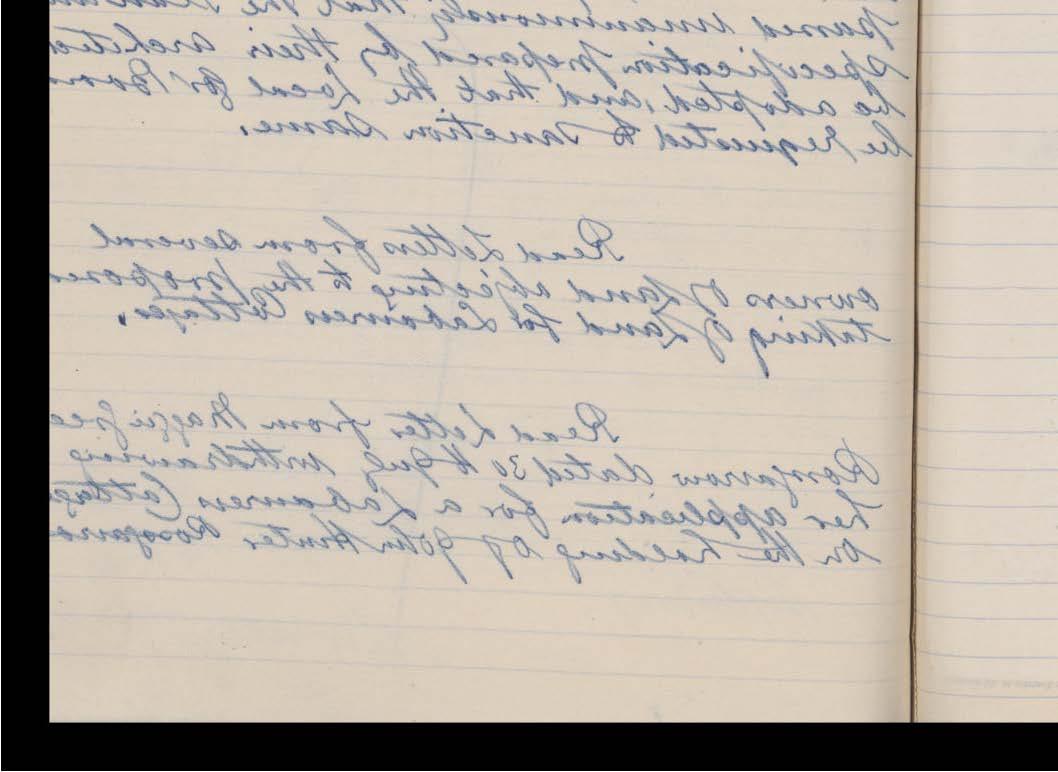 passed unanimously that the
Specification prepared by their architec
be adopted, and that the Local Gov Boar
be requested to sanction same.
Read Letters from several
owners of Land objecting to the propose
taking of Land for Labourers Cottages.
Read Letter from Maggie Gee
dated 30th July withdrawing
her application for a Labourers Cottage
on the holding of John Hunter